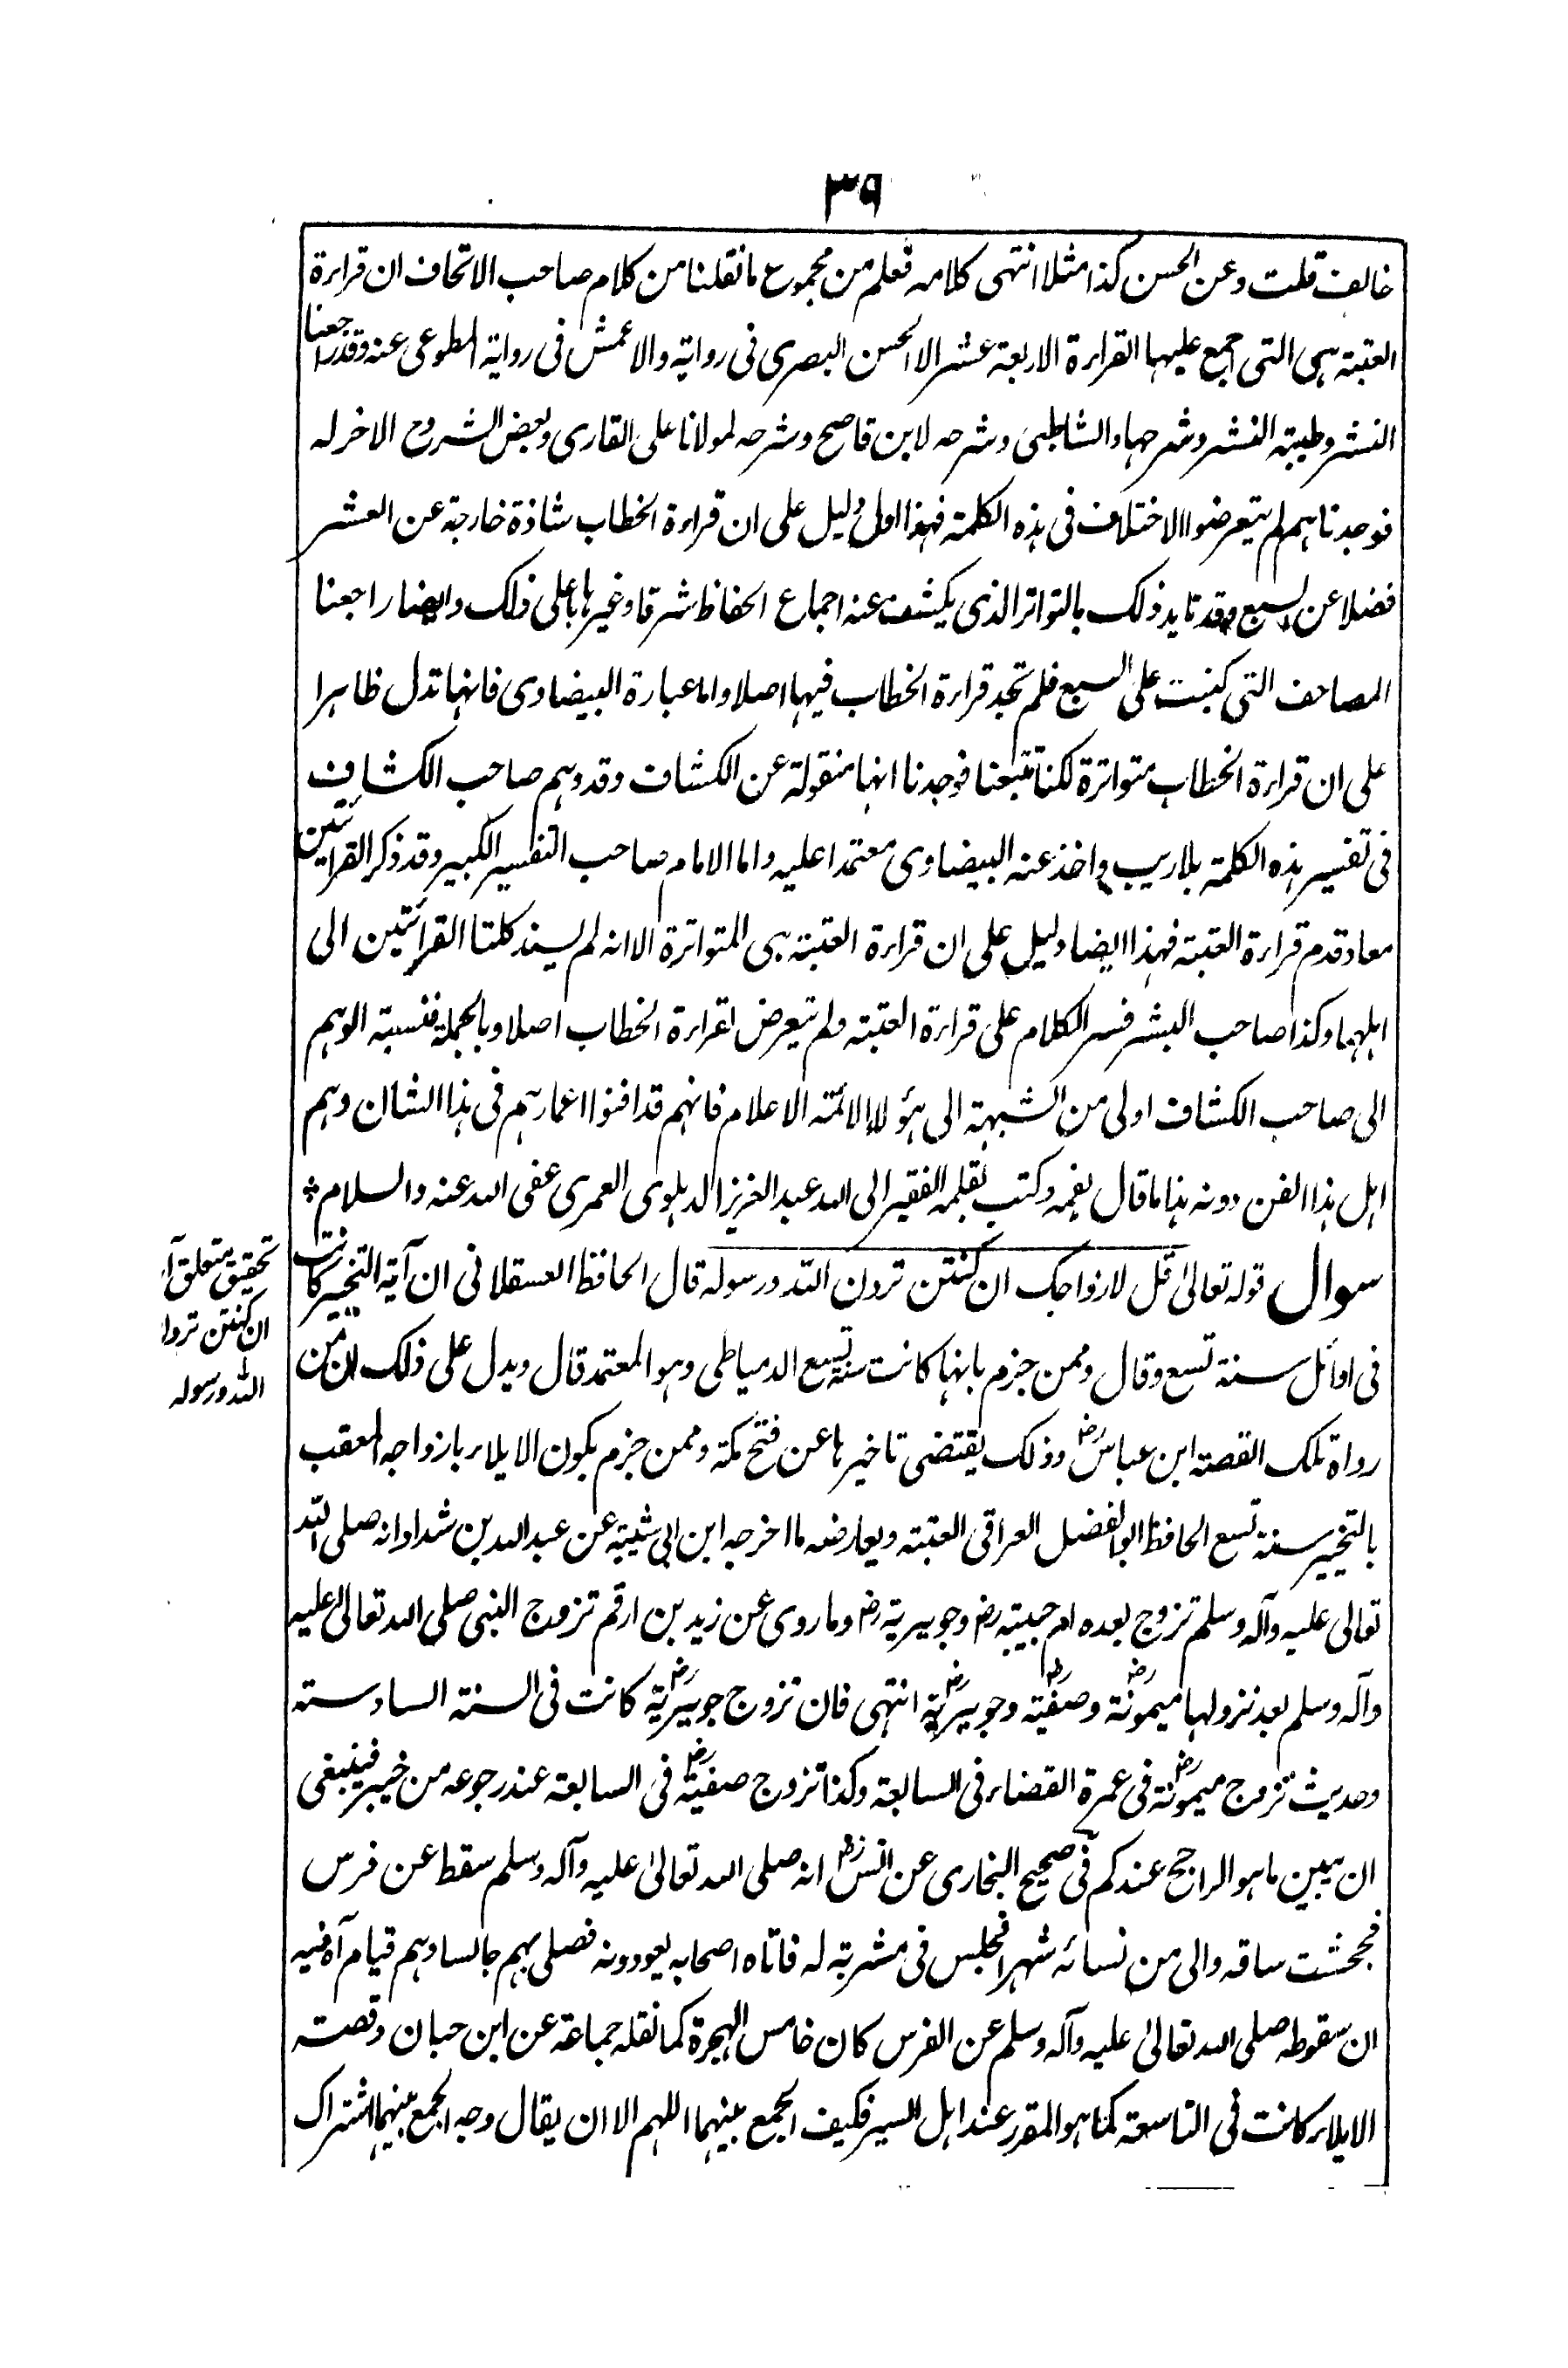 ۳۹
خالف قلت وعن الحسن كذا مثلا انتهى كلامه فعلم من مجموع ما نقلنا من كلام صاحب الاتحاف ان قراءة
الغيبة هى التى اجمع عليها القراءة الاربعة عشر الا الحسن البصرى فى رواية والاعمش فى رواية المطوعى عنه وقد راجعنا
النشر وطيبة النشر وشرحها والشاطبى وشرحه لابن قاصح وشرحه لمولانا على القارى وبعض الشروح الاخر له
فوجدناهم لم يتعرضوا الاختلاف فى هذه الكلمة فهذا اول دليل على ان قراءة الخطاب شاذة خارجة عن العشر
فضلا عن السبع وقد تايد ذلك بالتواتر الذى يكشف عنه اجماع الحفاظ شرقا وغيرها با على ذلك وايضا راجعنا
المصاحف التى كتبت على السبع فلم تجد قراءة الخطاب فيها اصلا واما عبارة البيضاوى فانها تدل ظاهرا
على ان قراءة الخطاب متواترة لكنا تتبعنا فوجدنا انها منقولة عن الكشاف وقد وهم صاحب الكشاف
فى تفسير هذه الكلمة بلا ريب واخذ عنه البيضاوى معتمدا عليه واما الامام صاحب التفسير الكبير وقد ذكر القرائتين
معا وقدم قراءة الغيبة فهذا ايضا دليل على ان قراءة الغيبة هى المتواترة الا انه لم يسند كلتا القرائتين الى
اهلهما وكذا صاحب النشر فسر الكلام على قراءة الغيبة ولم يتعرض لقراءة الخطاب اصلا وبالجملة فنسبة الوهم
الى صاحب الكشاف اولى من الشبهة الى هؤلاء الائمة الاعلام فانهم قد افنوا اعمارهم فى هذا الشان وهم
اهل هذا الفن دونه هذا ما قال بفمه وكتب بقلمه الفقير الى الله عبد العزيز الدهلوى العمرى عفى الله عنه والسلام *
سوال قوله تعالىٰ قل لازواجك ان كنتن تردن الله ورسوله قال الحافظ العسقلانى ان آية التخيير كانت
فى اوائل سنة تسع وقال وممن جزم بانها كانت سنة تسع الدمياطى وهو المعتمد قال ويدل على ذلك ان من
رواة تلك القصة ابن عباس رض وذلك يقتضى تاخيرها عن فتح مكة وممن جزم بكون الايلاء بازواجه المعقب
بالتخيير سنة تسع الحافظ ابو الفضل العراقى العتبة ويعارضه ما اخرجه ابن ابى شيبة عن عبد الله بن شداد انه صلى الله
تعالى عليه وآله وسلم تزوج بعده ام حبيبة رض وجويرية رض وما روى عن زيد بن ارقم تزوج النبى صلى الله تعالىٰ عليه
وآله وسلم بعد نزولها ميمونة رض وصفية رض وجويرية رض انتهى فان تزوج جويرية رض كانت فى السنة السادسة
وحديث تزوج ميمونة رض فى عمرة القضاء فى السابعة وكذا تزوج صفية رض فى السابعة عند رجوعه من خيبر فينبغى
ان يبين ما هو الراجح عندكم فى صحيح البخارى عن انس رض انه صلى الله تعالىٰ عليه وآله وسلم سقط عن فرس
فجحشت ساقه والى من نسائه شهرا فجلس فى مشربة له فاتاه اصحابه يعودونه فصلى بهم جالسا وهم قيام آه فيه
ان سقوطه صلى الله تعالىٰ عليه وآله وسلم عن الفرس كان خامس الهجرة كما نقله جماعة عن ابن حبان وقصة
الايلاء كانت فى التاسعة كما هو المقرر عند اهل السير فكيف الجمع بينهما اللهم الا ان يقال وجه الجمع بينهما اشتراك
تحقيق متعلق آ
ان كنتن تردن
الله ورسوله